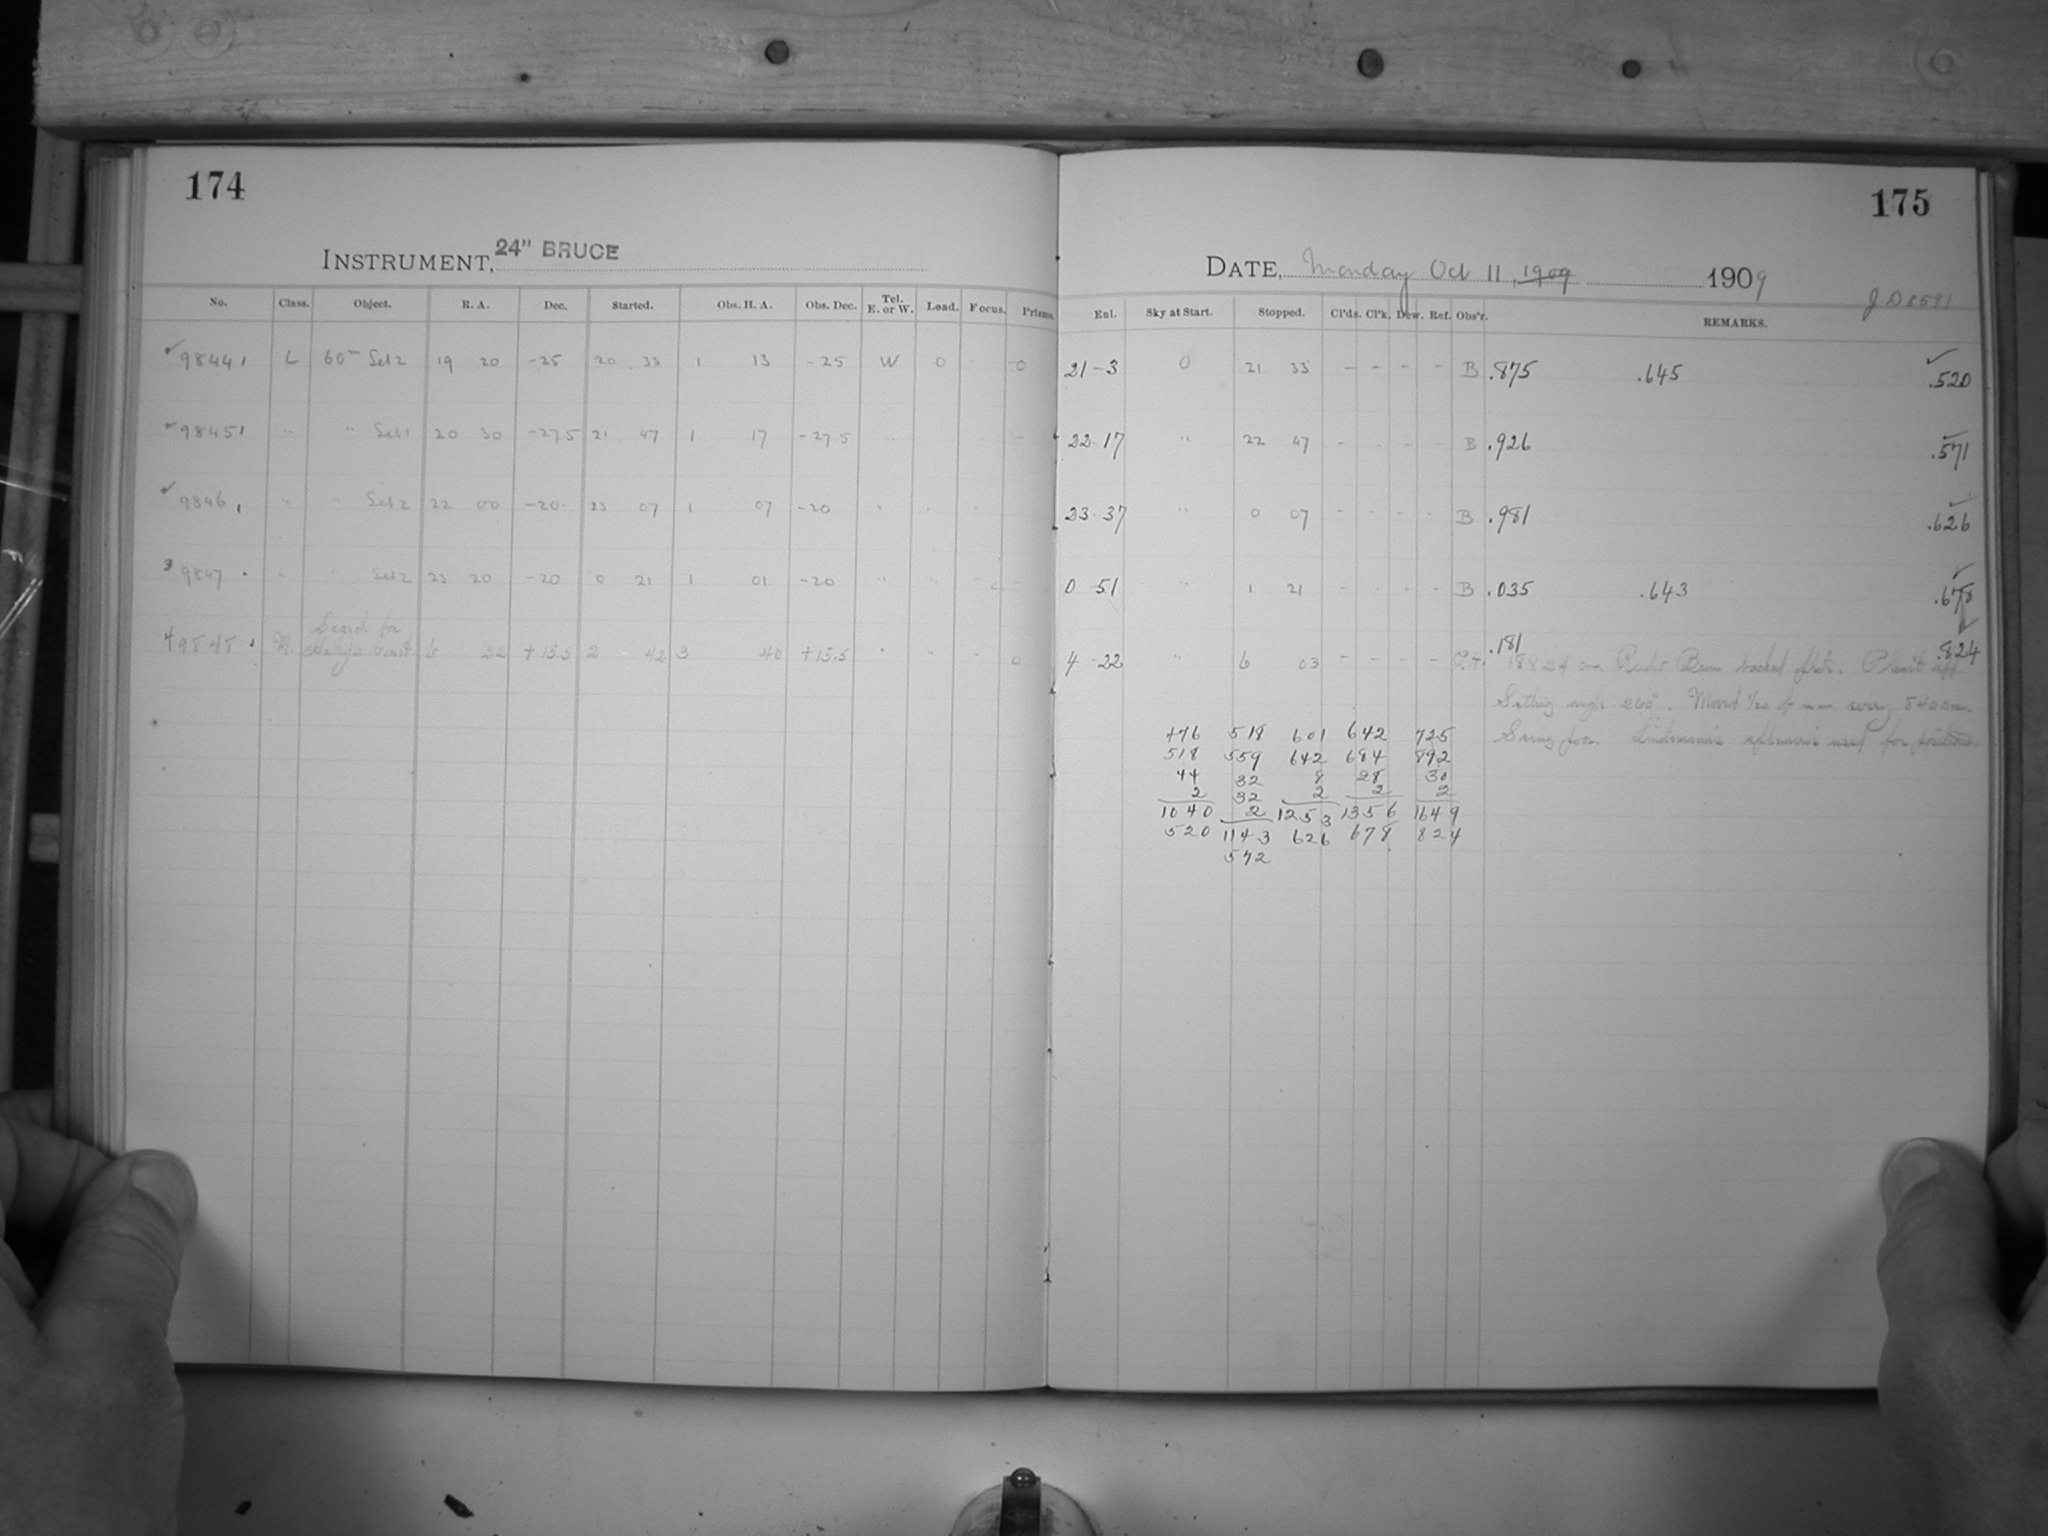 174
INSTRUMENT, 24" BRUCE
No. Class. Object. R. A. Dec. Started. Obs. H. A. Obs. Dec. Tel. E. or W. Load. Focus. Prisms.
9844 L 60m Set 2 19 20 -25 20 33 1 13 -25 W 0 - 0
9845 " " Set 1 20 30 -27.5 21 47 1 17 -27.5 "
9846 " " Set 2 22 00 -20 23 07 1 07 -20 "
9847 " " Set 2 23 20 -20 0 21 1 01 -20 " "
Search for
9848 M. Halley's Comet 6 22 +15.5 2 42 3 40 +15.5 " " - 0
175
DATE, Monday Oct 11, 1909 1909
J D 8591
Enl. Sky at Start. Stopped. Cl'ds. Cl'k. Dew. Ref. Obs'r. REMARKS.
21-3 0 21 33 - - - - B .875 .645 .520
22-17 " 22 47 - - - - B .926 .571
23-37 " 0 07 - - - - B .981 .626
0 51 " 1 21 - - - - B .035 .643 .678
4-22 " 6 03 - - - - .181 .824
cm. backed plate.
Setting angle Moved
used for position
476 519 601 642 725
518 559 642 684 892
44 32 8 28 30
2 32 2 2 2
1040 2 1253 1356 1649
520 1143 626 678 824
572